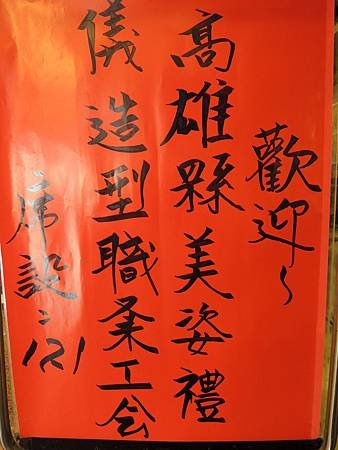 歡迎~
高雄縣美姿禮
儀造型職業工会
席設：121